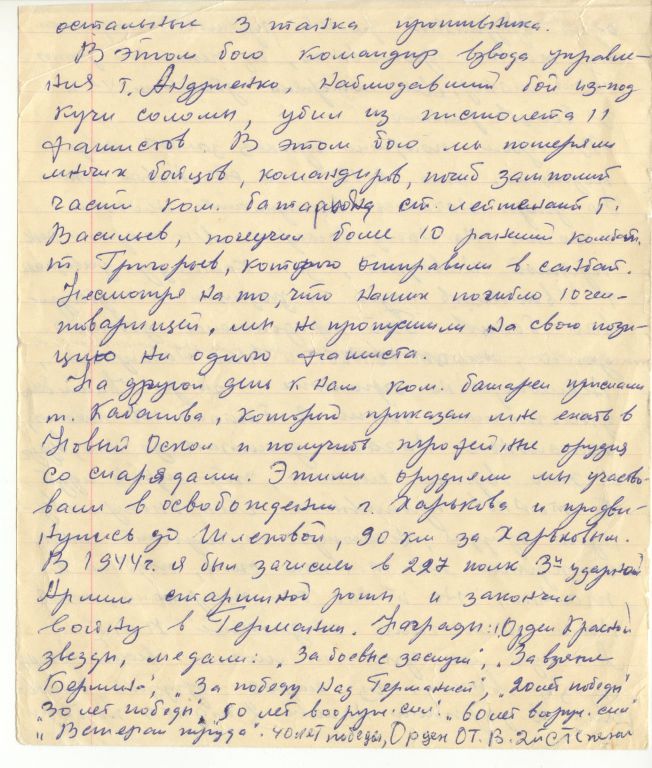 остальные 3 танка противника.
В этом бою командир взвода управле-
ния т. Андриенко, наблюдавший бой из-под
кучи соломы, убил из пистолета 11
фашистов. В этом бою мы потеряли
многих бойцов, командиров, погиб замполит
части ком. батареи ст. лейтенант т.
Васильев, получил более 10 ранений комбат.
т. Григорьев, которого отправили в санбат.
Несмотря на то, что наших погибло 10 чел-
товарищей, мы не пропустили на свою пози-
цию ни одного фашиста.
На другой день к нам ком. батареи прислали
т. Кабанова, который приказал мне ехать в
Новый Оскол и получить трофейные орудия
со снарядами. Этими орудиями мы участво-
вали в освобождении г. Харькова и продви-
нулись до, 90 км за Харьковым.
В 1944 г. я был зачислен в 227 полк 3й ударной
Армии старшиной роты и закончил
войну в Германии. Награды: Орден Красной
звезды, медали: „За боевые заслуги", „За взятие
Берлина", „За победу над Германией", „20 лет победы"
„30 лет победы", „50 лет вооруж. сил". „60 лет воруж. сил"
„Ветеран труда". 40 лет победы, Орден ОТ. В. 2й степени